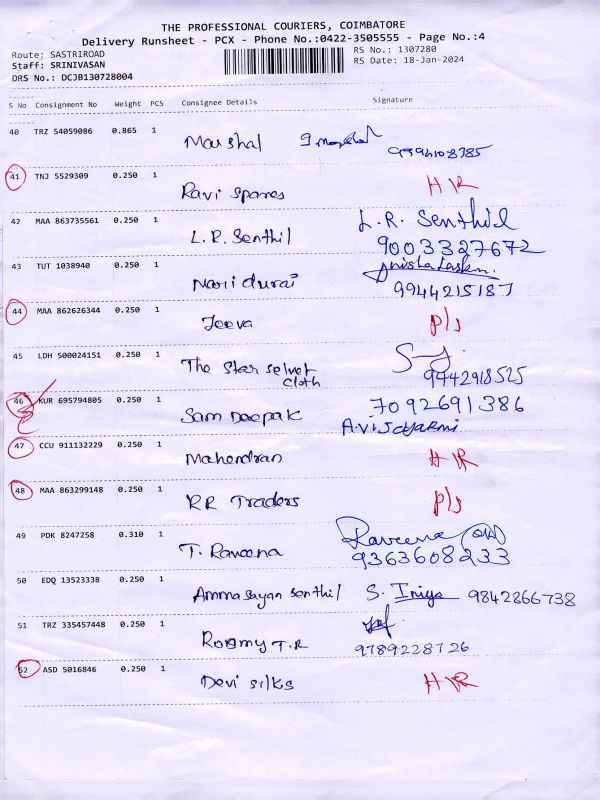 THE PROFESSIONAL COURIERS, COIMBATORE
Delivery Runsheet - PCX - Phone No.:0422-3505555 - Page No.:4
Route: SASTRIROAD RS No.: 1307280
Staff: SRINIVASAN RS Date: 18-Jan-2024
DRS No.: DCJB130728004
S No Consignment No Weight PCS Consignee Details Signature
40 TRZ 54059086 0.865 1
Marshal
41 TNJ 5529309 0.250 1
Ravi Spares H/R
42 MAA 863735561 0.250 1 L.R. Senthil
L.R. Senthil 9003327672
43 TUT 1038940 0.250 1
Nari durai 9944215187
44 MAA 862626344 0.250 1
Jeeva P/s
45 LDH 500024151 0.250 1
The Star Selvet
cloth 9942918525
46 KUR 695794805 0.250 1 7092691386
Sam Deepak
47 CCU 911132229 0.250 1
Mahendran H/R
48 MAA 863299148 0.250 1
RR Traders P/s
49 PDK 8247258 0.310 1 Raveena
T. Raveena 9363608233
50 EDQ 13523338 0.250 1
Ammasayan Senthil S. Iniya 9842866738
51 TRZ 335457448 0.250 1
T.R 9789228726
52 ASD 5016846 0.250 1
Devi Silks H/R